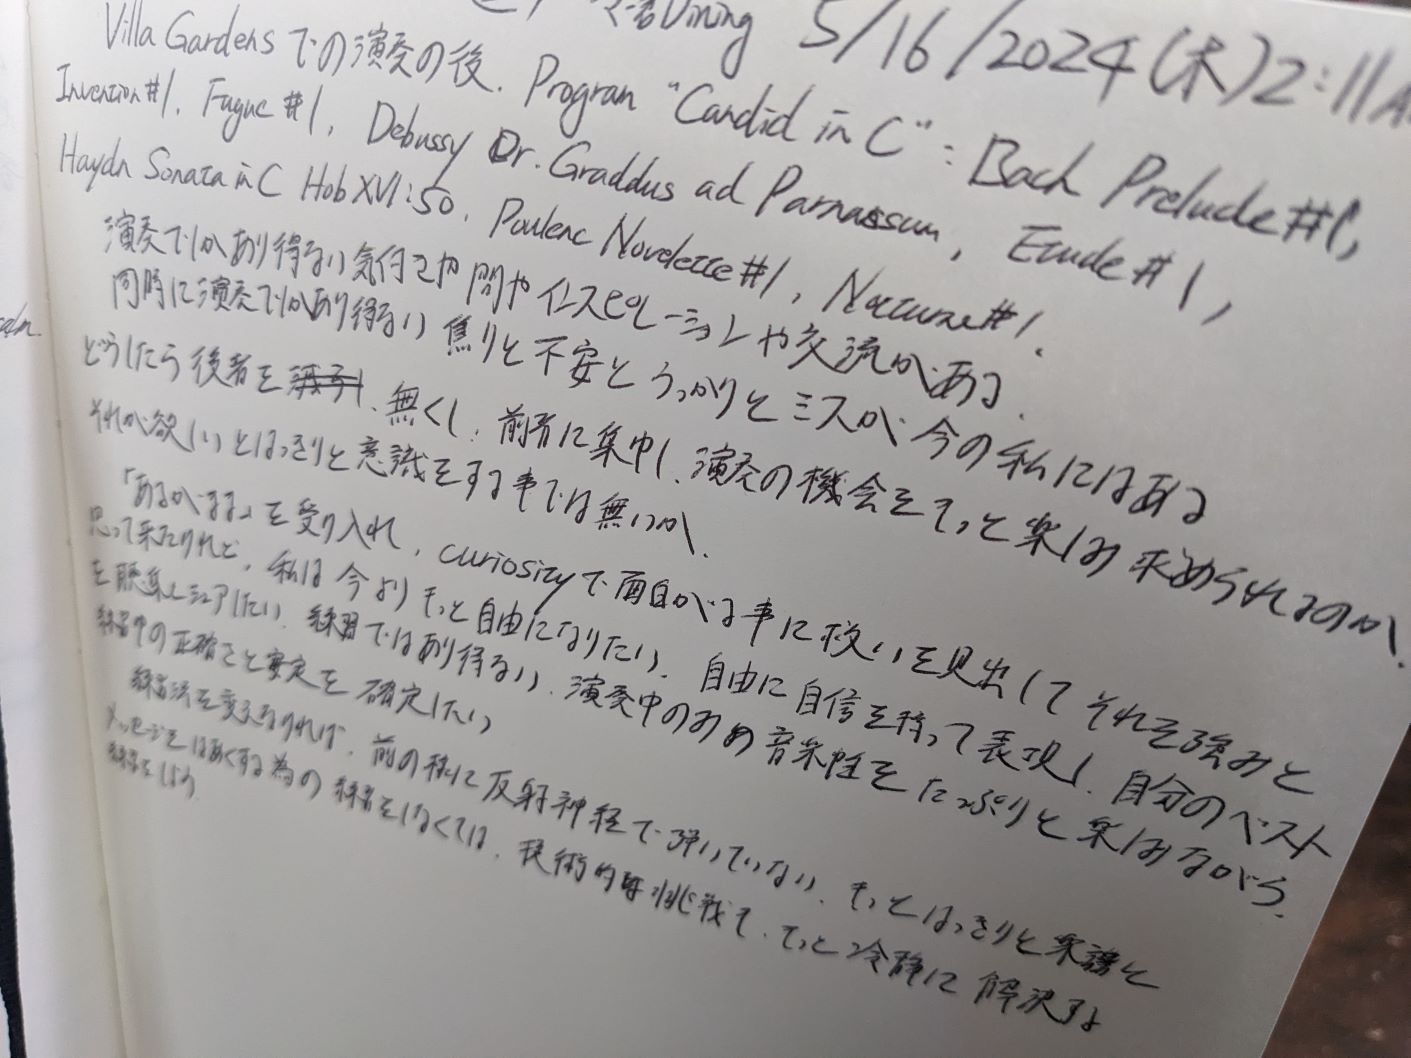 Dining 5/16/2024(木)2:11A
Villa Gardens での演奏の後、Program "Candid in C": Bach Prelude #1,
Invention #1, Fugue #1, Debussy Dr. Graddus ad Parnassum, Etude #1,
Haydn Sonata in C Hob XVI:50, Poulenc Novelette #1, Nocturne #1.
演奏でしかあり得ない気付きや問やインスピレーションや交流がある。
同時に演奏でしかあり得ない焦りと不安とうっかりとミスが今の私にはある
どうしたら後者を、無くし、前者に集中し、演奏の機会をもっと楽しみ求められるのか、
それが欲しいとはっきりと意識をする事では無いか、
「あるがまま」を受け入れ、curiosityで面白がる事に救いを見出してそれを強みと
思って来たけれど、私は今よりもっと自由になりたい、自由に自信を持って表現し、自分のベスト
を聴集とシェアしたい、練習ではあり得ない、演奏中のみの音楽性をたっぷりと楽しみながら、
練習中の正確さと安定を確定したい
練習法を変えなければ、前の様に反射神経で弾いていない、もっとはっきりと楽譜と
メッセージをはあくする為の練習をしなくては、技術的な挑戦も、もっと冷静に解決する
練習をしよう